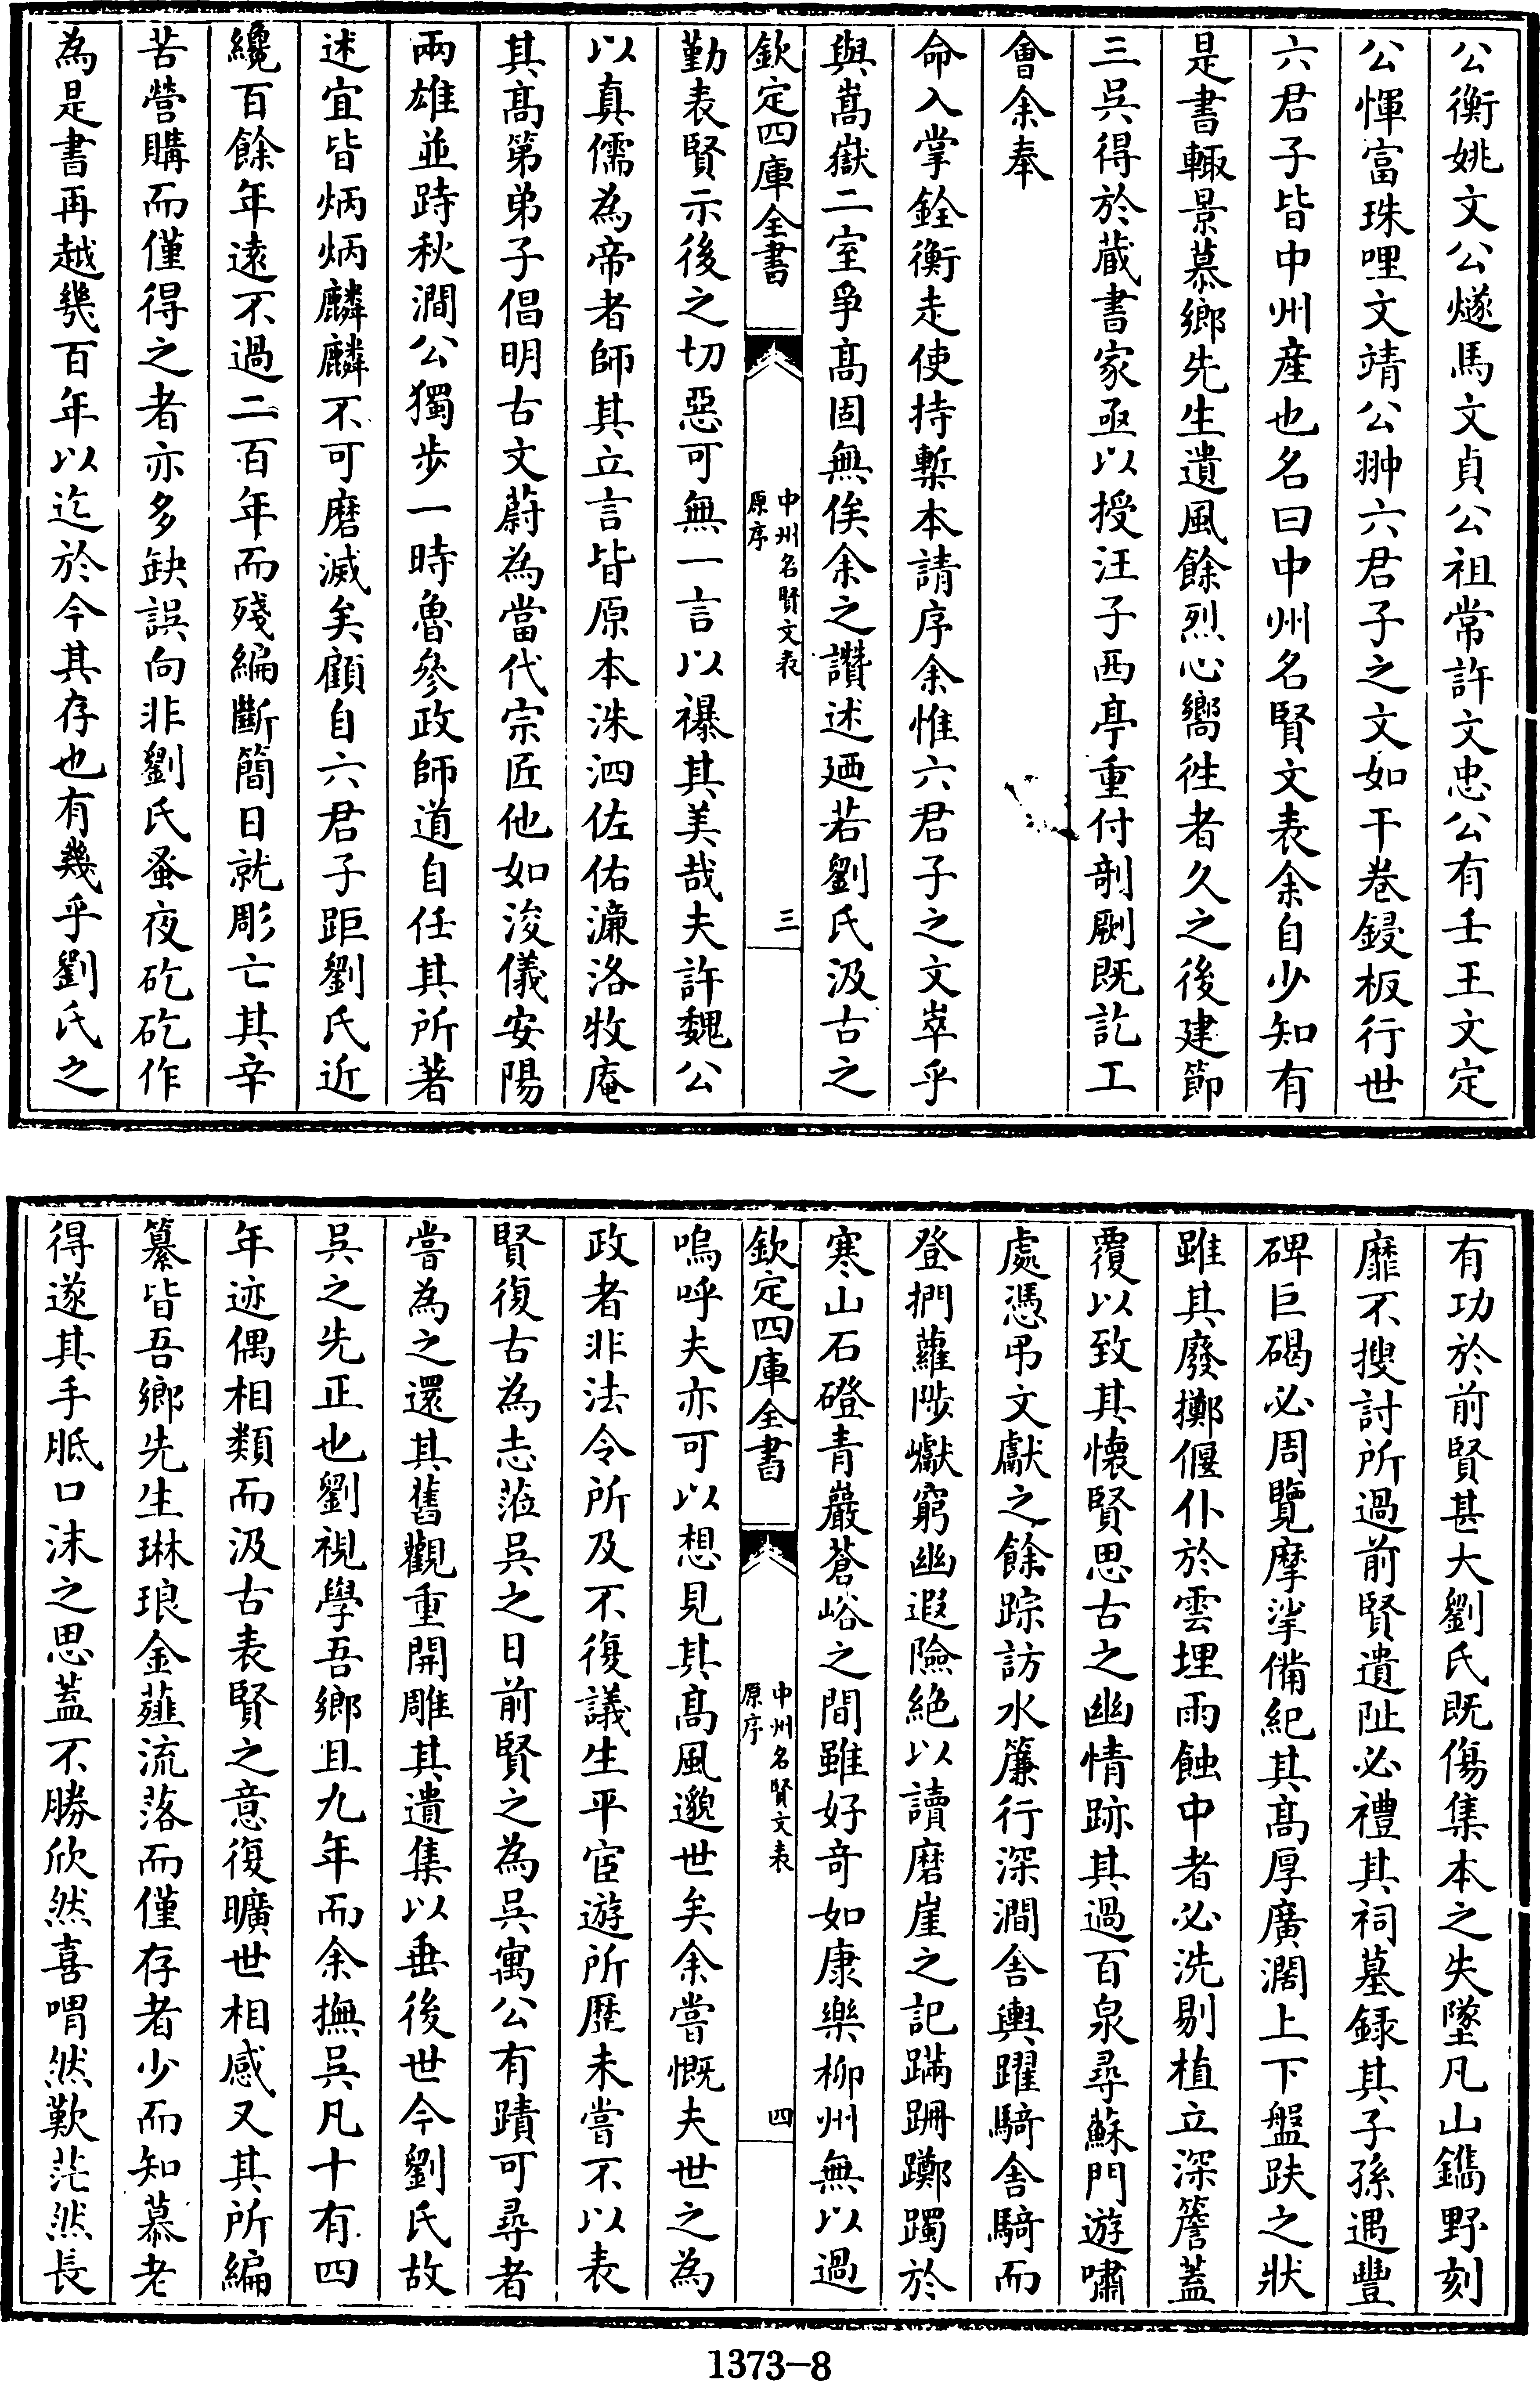 公衡姚文公燧馬文貞公祖常許文忠公有壬王文定
公惲富珠哩文靖公翀六君子之文如干卷鋟板行世
六君子皆中州產也名曰中州名賢文表余自少知有
是書輒景慕鄉先生遺風餘烈心嚮徃者久之後建節
三吳得於蔵書家亟以授汪子西亭重付剞劂既訖工
會余奉
命入掌銓衡走使持槧本請序余惟六君子之文崒乎
與嵩嶽二室爭髙固無俟余之讚述廼若劉氏汲古之
欽定四庫全書
中州名賢文表
原序
三
勤表賢示後之切惡可無一言以襮其美哉夫許魏公
以真儒為帝者師其立言皆原本洙泗佐佑濂洛牧庵
其髙第弟子倡明古文蔚為當代宗匠他如浚儀安陽
兩雄並跱秋澗公獨步一時魯參政師道自任其所著
述宜皆炳炳麟麟不可磨滅矣顧自六君子距劉氏近
纔百餘年逺不過二百年而殘編斷簡日就彫亡其辛
苦營購而僅得之者亦多缺誤向非劉氏蚤夜矻矻作
為是書再越㡬百年以迄於今其存也有幾乎劉氏之
有功於前賢甚大劉氏既傷集本之失墜凡山鐫野刻
靡不搜討所過前賢遺阯必禮其祠墓録其子孫遇豐
碑巨碣必周覽摩挲備紀其髙厚廣濶上下盤趺之狀
雖其廢擲偃仆於雲埋雨蝕中者必洗剔植立深簷蓋
覆以致其懷賢思古之幽情跡其過百泉尋蘇門遊嘯
處憑弔文獻之餘踪訪水簾行深澗舍輿躍騎舍騎而
登捫蘿陟巘窮幽遐險絶以讀磨崖之記蹣跚躑躅於
寒山石磴青巖蒼峪之間雖好竒如康樂柳州無以過
欽定四庫全書
中州名賢文表
原序
四
嗚呼夫亦可以想見其髙風邈世矣余嘗慨夫世之為
政者非法令所及不復議生平宦遊所歴未嘗不以表
賢復古為志涖吳之日前賢之為吳寓公有蹟可尋者
嘗為之還其舊觀重開雕其遺集以垂後世今劉氏故
吳之先正也劉視學吾鄉且九年而余撫吳凡十有四
年迹偶相類而汲古表賢之意復曠世相感又其所編
纂皆吾鄉先生琳琅金薤流落而僅存者少而知慕老
得遂其手胝口沫之思蓋不勝欣然喜喟然歎茫然長
1373-8